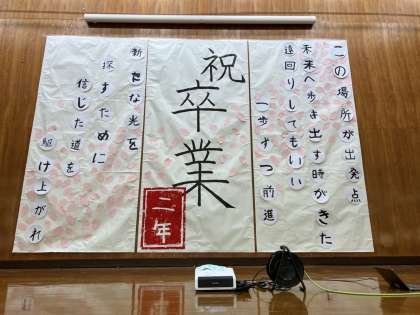 この場所が出発点
未来へ歩み出す時がきた
遠回りしてもいい
一歩ずつ前進
祝
卒業
二年
新たな光を
探すために
信じた道を
駆け上がれ